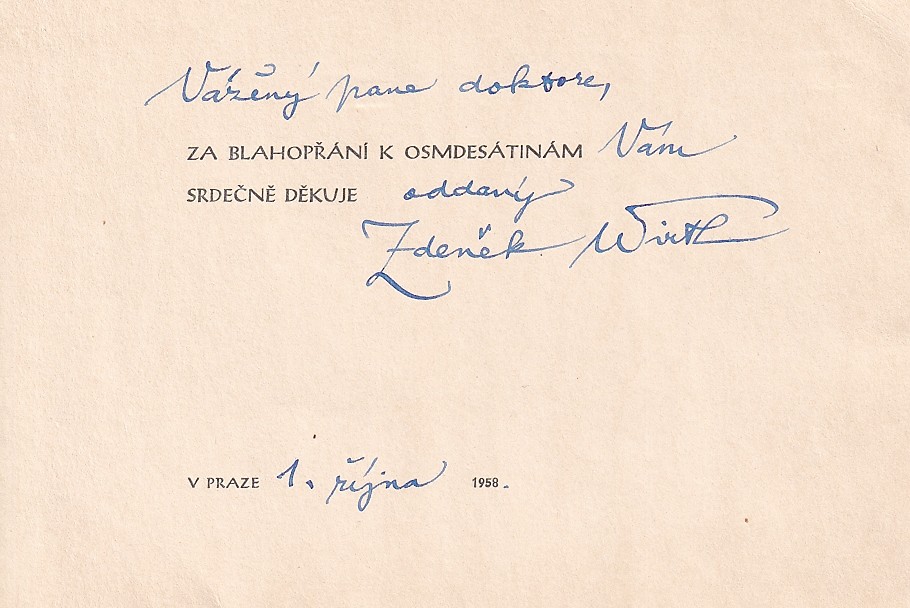 Vážený pane doktore,
ZA BLAHOPŘÁNÍ K OSMDESÁTINÁM Vám
SRDEČNĚ DĚKUJE oddaný
Zdeněk Wirth
V PRAZE 1. října 1958.